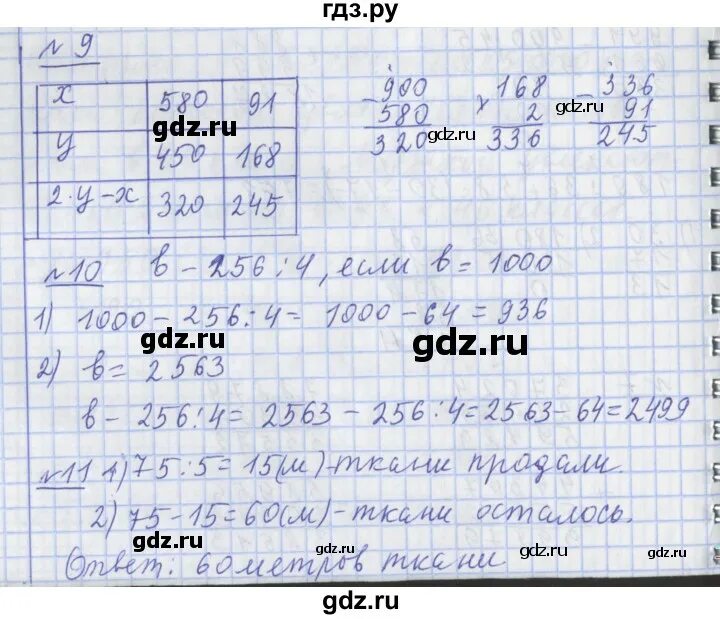 гдз.ру
№ 9
x 580 91
y 450 168
2·y-x 320 245
- 900
580
320
x 168
2
336
- 336
91
245
gdz.ru
gdz.ru
gdz.ru
gdz.ru
№10 в - 256 : 4, если в = 1000
1) 1000 - 256 : 4 = 1000 - 64 = 936
gdz.ru
gdz.ru
2) в = 2563
в - 256 : 4 = 2563 - 256 : 4 = 2563 - 64 = 2499
№11 1) 75 : 5 = 15 (м) - ткани продали.
2) 75 - 15 = 60 (м) - ткани осталось.
gdz.ru
gdz.ru
gdz.ru
Ответ: 60 метров ткани
gdz.ru